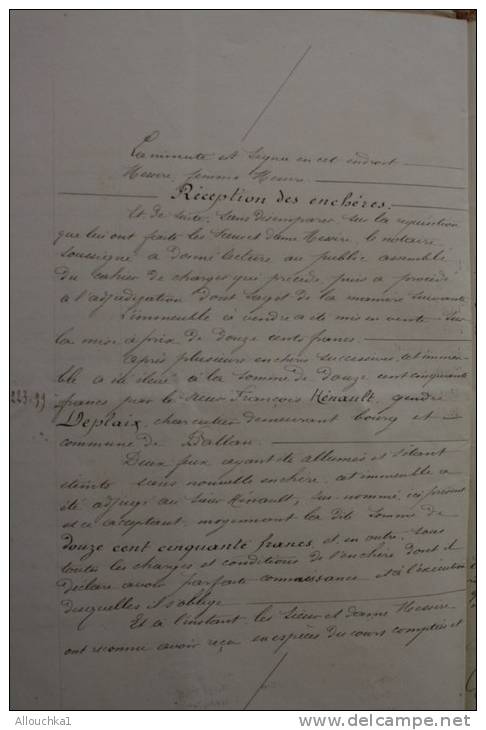 La minute est signée en cet endroit
Hervire, femme Hervire
Réception des enchères.
Et de suite, sans désemparer sur la réquisition
que lui ont faite les sieur et dame Hervire, le notaire
soussigné a donné lecture au public assemblé
du cahier de charges qui précède puis a procédé
à l'adjudication dont s'agit de la manière suivante
L'immeuble à vendre a été mis en vente sur
la mise à prix de douze cents francs.
Après plusieurs enchères successives, cet immeu-
ble a été élevé à la somme de douze cent cinquante
223.99. francs par le sieur François Hénault, gendre
Deplaix, charcutier demeurant bourg et
commune de Ballan.
Deux feux ayant été allumés et s'étant
éteints sans nouvelle enchère, cet immeuble a
été adjugé au sieur Hénault, sus nommé, ici présent
et ce acceptant, moyennant la dite somme de
douze cent cinquante francs et, en outre, sous
toutes les charges et conditions de l'enchère dont il
déclare avoir parfaite connaissance et à l'exécution
desquelles il s'oblige
Et à l'instant, les sieur et dame Hervire
ont reconnu avoir reçu en espèces du cours comptées et
Allouchka1
www.delcampe.net